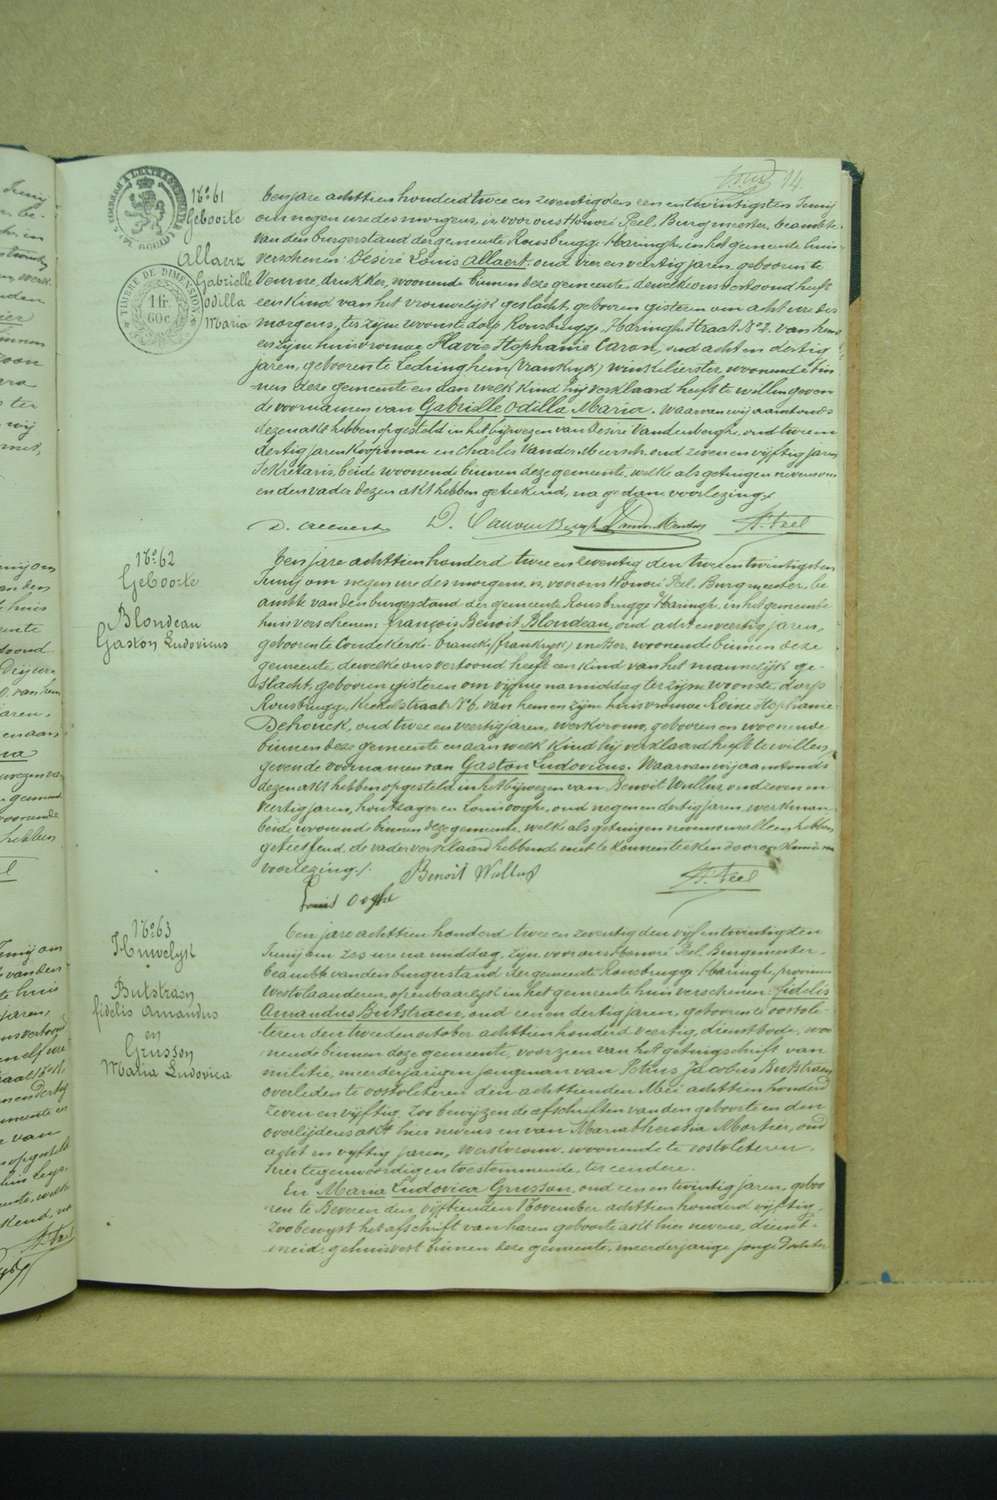 14
TIMBRE DE DIMENSION
1 fr.
60c.
N° 61
Geboorte
Allaert
Gabrielle
Odilla
Maria
Ten jare achttien honderd twee en zeventig den een en twintigsten Junij
om negen ure des morgens, is voor ons Honoré Feel, Burgmeester, beambte
van den burgerstand der gemeente Rousbrugge-Haringhe, in het gemeente huis
verschenen: Désiré Louis Allaert, oud vier en veertig jaren, geboren te
Veurne, drukker, woonende binnen deze gemeente, dewelke ons vertoond heeft
een kind van het vrouwelijk geslacht, geboren gisteren om acht ure des
morgens, ter zijne woonste dorp Rousbrugge, Haringhe Straat N° 2, van hem
en zijne huisvrouwe Flavie Stephanie Caron, oud acht en dertig
jaren, geboren te Ledringhem (Vrankrijk) winkelierster, woonende bin
nen deze gemeente en aan welk kind hij verklaard heeft te willen geven
de voornamen van Gabrielle Odilla Maria. Waarvan wij aanstonds
dezen akt hebben opgesteld in het bijwezen van Desiré Vandenberghe, oud twee en
dertig jaren koopman en Charles Vander Meersch, oud zeven en vijftig jaren
Sekretaris, beide woonende binnen deze gemeente, welke als getuigen nevens ons
en den vader dezen akt hebben geteekend, na gedane voorlezing.
D. Allaert D. Vandenberghe H. Feel
N° 62
Geboorte
Blondeau
Gaston Ludovicus
Ten jare achttien honderd twee en zeventig den twee en twintigsten
Junij om negen ure des morgens, is voor ons Honoré Feel, Burgmeester, be
ambte van den burgerstand der gemeente Rousbrugge-Haringhe, in het gemeente
huis verschenen: françois Benoit Blondeau, oud acht en veertig jaren,
geboren te Coudekerke-branche (frankrijk) metser, woonende binnen deze
gemeente, dewelke ons vertoond heeft een kind van het mannelijk ge-
slacht, geboren gisteren om vijf ure namiddag ter zijne woonste, dorp
Rousbrugge, straat N° 6, van hem en zijne huisvrouwe Reine Stephanie
Dehonck, oud twee en veertig jaren, werkvrouw, geboren en woonende
binnen deze gemeente en aan welk kind hij verklaard heeft te willen
geven de voornamen van Gaston Ludovicus. Waarvan wij aanstonds
dezen akt hebben opgesteld in het bijwezen van Benoit Wullus, oud zeven en
veertig jaren, houtzager en Louis Ooghe, oud negen en dertig jaren, werkman
beide woonend binnen deze gemeente, welke als getuigen nevens ons alleen hebben
geteekend, de vader verklaard hebbende niet te konnen teeken door onkunde na
voorlezing./. Benoit Wullus H. Feel
Louis Ooghe
N° 63
Huwelijk
Butstraen
fidelis Amandus
en
Grusson
Maria Ludovica
Ten jare achttien honderd twee en zeventig den vijf en twintigsten
Junij om zes ure na middag, zijn voor ons Honoré Feel, Burgmeester
beambte van den burgerstand der gemeente Rousbrugge-Haringhe, provincie
Westvlaanderen, openbaarlijk in het gemeente huis verschenen: fidelis
Amandus Butstraen, oud een en dertig jaren, geboren te oostvle-
teren den tweeden october achttien honderd veertig, dienstbode, woo
nende binnen deze gemeente, voorzien van het getuigschrift van
militie, meerderjarigen jongman van Petrus Jacobus Butstraen
overleden te oostvleteren den achttienden Mei achttien honderd
zeven en vijftig, zoo bewijzen de afschriften van den geboorte en den
overlijdens akt hier nevens en van Maria Theresia Mortier, oud
acht en vijftig jaren, werkvrouw, woonende te oostvleteren,
hier tegenwoordig en toestemmende, ter eendere.
En Maria Ludovica Grusson, oud een en twintig jaren, gebo
ren te Beveren den vijftienden November achttien honderd vijftig,
zoo bewijst het afschrift van haren geboorte akt hier nevens, dienst-
meid, gehuisvest binnen deze gemeente, meerderjarige jonge dochter